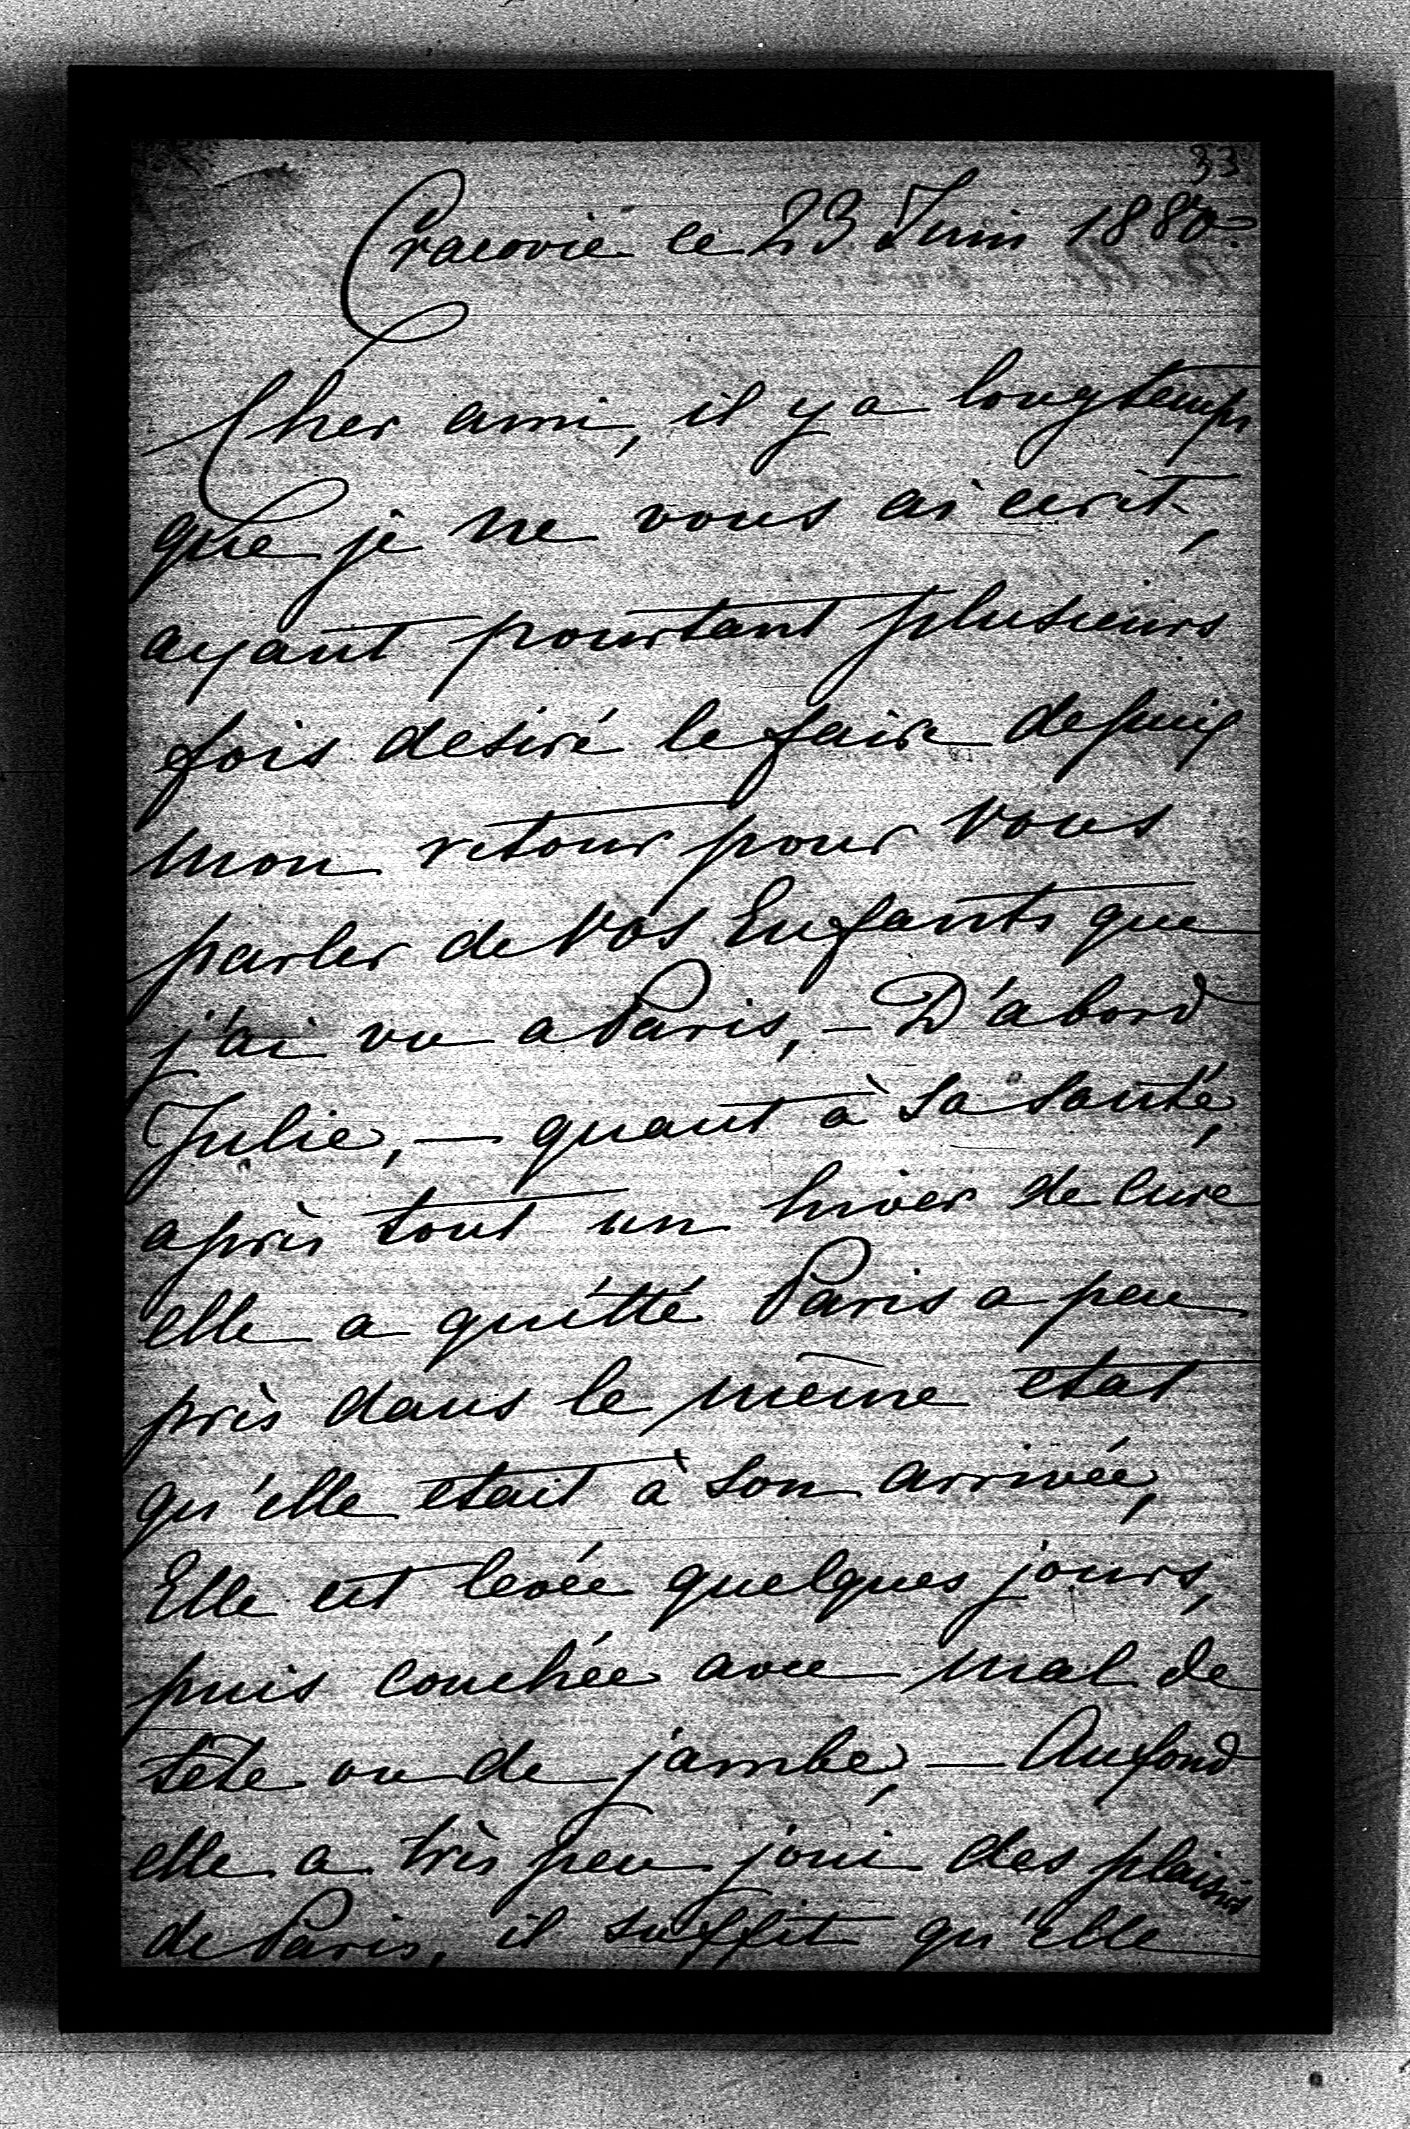 33
Cracovie le 23 Juin 1880
Cher ami, il y a longtemps
que je ne vous ai ecrit,
ayant pourtant plusieurs
fois desiré le faire depuis
mon retour pour vous
parler de vos Enfants que
j'ai vu a Paris, – D'abord
Julie, – quant à sa santé,
après tout un hiver de cure
elle a quitté Paris a peu
près dans le même etat
qu'elle etait à son arrivée,
Elle est levée quelques jours,
puis couchée avec mal de
tête ou de jambe, – Au fond
elle a très peu joui des plaisirs
de Paris, il suffit qu'elle